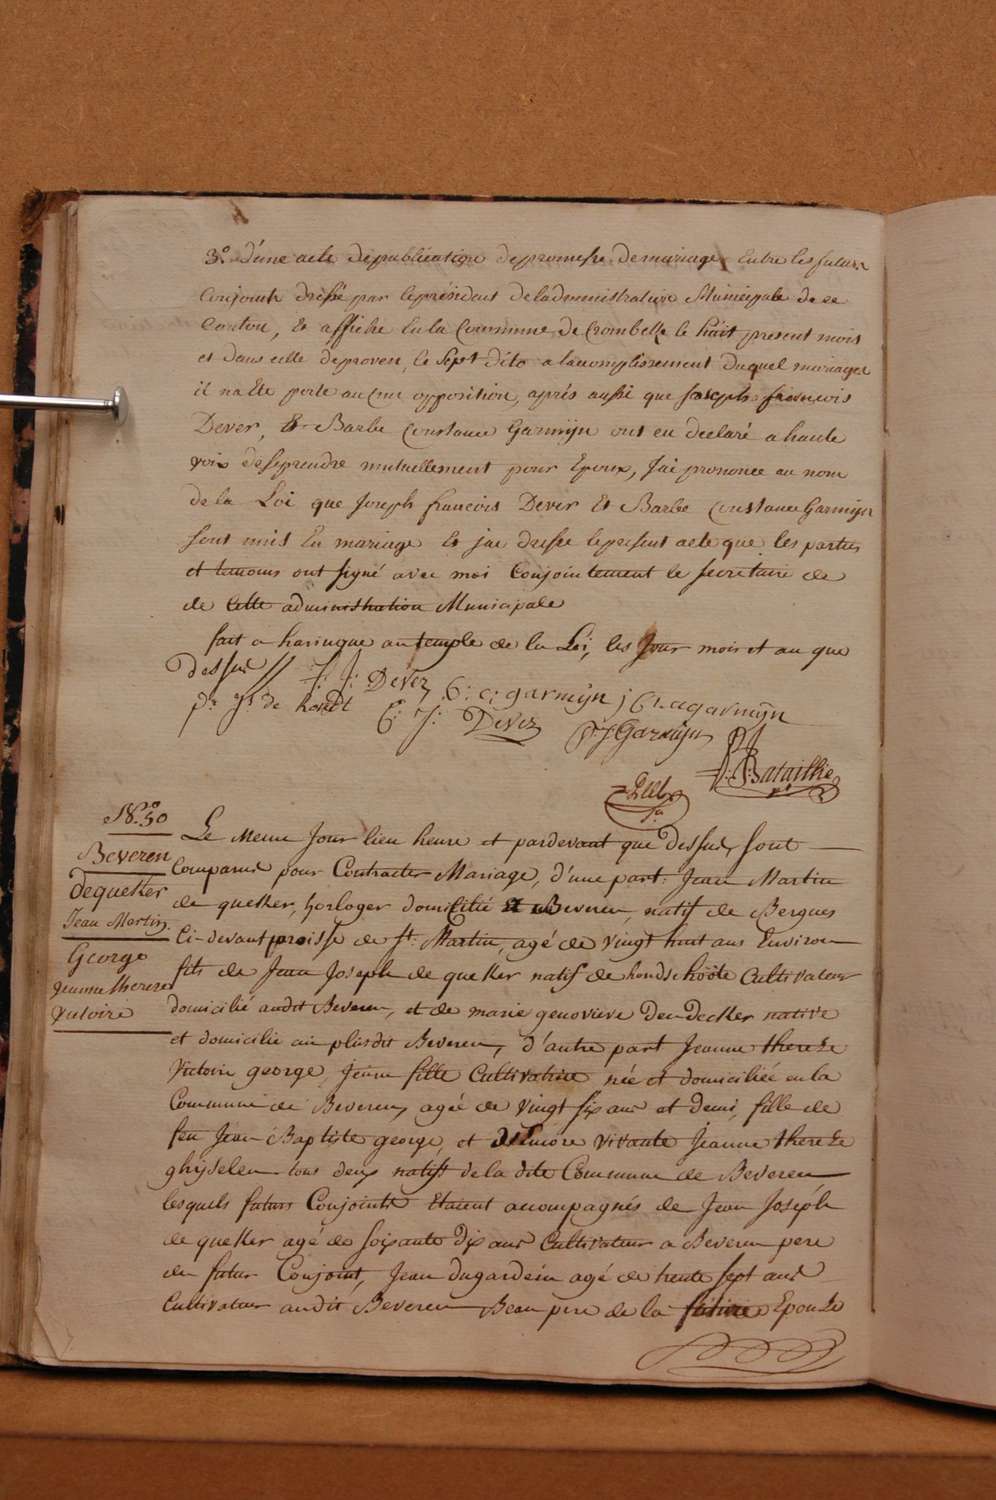 3.º d'une acte de publication de promesse de mariage Entre les futurs
Conjoints dressé par le président de l'administration Municipale de ce
Canton, Et affiché En la Commune de Crombelle le huit present mois
et dans celle de proven, le sept dito a l'acomplissement duquel mariage
il n'a Ete porté aucune opposition, aprés aussi que Joseph francois
Dever, Et Barbe Constance Garmijn ont eu declaré a haute
voix de se prendre mutuellement pour Epoux, J'ai prononcé au nom
de la Loi que Joseph francois Dever Et Barbe Constance Garmijn
sont unis En mariage Et j'ai dressé le present acte que les parties
et temoins ont signé avec moi Conjointement le secretaire de
de cette administration Municipale
fait a haringue au temple de la Loi, les Jour mois et an que
dessus // J: J: Devez B: C: garmijn j C: a garmÿn
C: J: Devez P J Garmijn
J: Bataillie
N.º 50
Beveren
dequeker
Jean Martin
George
Jeanne therese
Victoire
Le Meme Jour lieu heure et pardevant que dessus sont
Comparus pour Contracter Mariage, d'une part: Jean Martin
de queker, horloger domicilié a Beveren, natif de Bergues
Ci-devant proisse de St. Martin, agé de vingt huit ans Environ
fils de Jean Joseph de queker natif de hondschoote Cultivateur
domicilié audit Beveren, et de marie genovieve Den Decker native
et domicilie au plusdit Beveren, d'autre part Jeanne thereze
Victoire george, jeune fille Cultivatrice née et domiciliée en la
Commune de Beveren, agée de vingt six ans et demi, fille de
feu Jean Baptiste george, et d'Encore vivante Jeanne thereze
ghijselen tous deux natifs de la dite Commune de Beveren
lesquels futurs Conjoints Etaient acompagnés de Jean Joséph
de queker agé de soixante dix ans Cultivateur a Beveren pere
du futur Conjoint, Jean dugardein agé de trente sept ans
Cultivateur audit Beveren Beau pere de la future Epouze